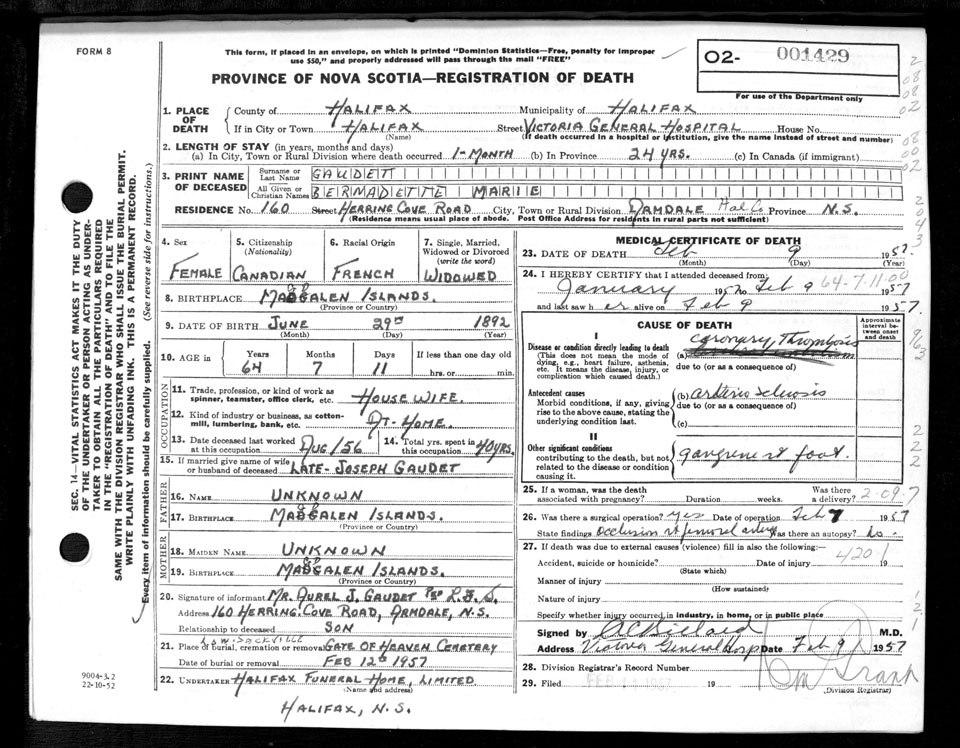 FORM 8
This form, if placed in an envelope, on which is printed "Dominion Statistics—Free, penalty for improper
use $50," and properly addressed will pass through the mail "FREE"
O2- 001429
For use of the Department only
PROVINCE OF NOVA SCOTIA—REGISTRATION OF DEATH
1. PLACE OF DEATH
County of HALIFAX Municipality of HALIFAX
If in City or Town HALIFAX Street VICTORIA GENERAL HOSPITAL House No.
(Name) (If death occurred in a hospital or institution, give the name instead of street and number)
2. LENGTH OF STAY (in years, months and days)
(a) In City, Town or Rural Division where death occurred 1-MONTH (b) In Province 24 YRS. (c) In Canada (if immigrant)
3. PRINT NAME OF DECEASED
Surname or Last Name GAUDETT
All Given or Christian Names BERMADETTE MARIE
RESIDENCE No. 160 Street HERRING COVE ROAD City, Town or Rural Division ARMDALE Hal Co Province N.S.
(Residence means usual place of abode. Post Office Address for residents in rural parts not sufficient)
4. Sex FEMALE
5. Citizenship (Nationality) CANADIAN
6. Racial Origin FRENCH
7. Single, Married, Widowed or Divorced (write the word) WIDOWED
8. BIRTHPLACE MAGDALEN ISLANDS.
(Province or Country)
9. DATE OF BIRTH JUNE 29TH 1892
(Month) (Day) (Year)
10. AGE in Years Months Days If less than one day old
64 7 11 hrs. or min.
OCCUPATION
11. Trade, profession, or kind of work as
spinner, teamster, office clerk, etc. HOUSEWIFE.
12. Kind of industry or business, as cotton-
mill, lumbering, bank, etc. AT-HOME.
13. Date deceased last worked
at this occupation AUG/56
14. Total yrs. spent in
this occupation 40 YRS.
15. If married give name of wife
or husband of deceased LATE-JOSEPH GAUDET
FATHER
16. NAME UNKNOWN
17. BIRTHPLACE MAGDALEN ISLANDS.
(Province or Country)
MOTHER
18. MAIDEN NAME UNKNOWN
19. BIRTHPLACE MAGDALEN ISLANDS.
(Province or Country)
20. Signature of informant MR. AUREL J. GAUDET
Address 160 HERRING COVE ROAD, ARMDALE, N.S.
Relationship to deceased SON
LOW. SACKVILLE
21. Place of burial, cremation or removal GATE OF HEAVEN CEMETERY
Date of burial or removal FEB 12TH 1957
22. UNDERTAKER HALIFAX FUNERAL HOME, LIMITED
(Name and address)
HALIFAX, N.S.
MEDICAL CERTIFICATE OF DEATH
23. DATE OF DEATH Feb 9 1957.
(Month) (Day) (Year)
24. I HEREBY CERTIFY that I attended deceased from:
January 1957 to Feb 9 1957
64-7-11.00
and last saw her alive on Feb 9 1957
CAUSE OF DEATH
Approximate interval between onset and death
I
Disease or condition directly leading to death
(This does not mean the mode of dying, e.g., heart failure, asthenia, etc. It means the disease, injury, or complication which caused death.)
(a) coronary Thrombosis
due to (or as a consequence of)
Antecedent causes
Morbid conditions, if any, giving rise to the above cause, stating the underlying condition last.
(b) arterio sclerosis
due to (or as a consequence of)
(c)
II
Other significant conditions
contributing to the death, but not related to the disease or condition causing it.
gangrene rt foot.
25. If a woman, was the death associated with pregnancy? Duration weeks. Was there a delivery? 2-09-7
26. Was there a surgical operation? yes Date of operation Feb 7 1957
State findings occlusion rt femoral artery Was there an autopsy? no
27. If death was due to external causes (violence) fill in also the following:—
Accident, suicide or homicide? Date of injury 19
(State which)
4201
Manner of injury
(How sustained)
Nature of injury
Specify whether injury occurred in industry, in home, or in public place
Signed by M.D.
Address Victoria General Hosp Date Feb 9 1957
28. Division Registrar's Record Number
29. Filed 19
(Division Registrar)
SEC. 14—VITAL STATISTICS ACT MAKES IT THE DUTY
OF THE UNDERTAKER OR PERSON ACTING AS UNDER-
TAKER TO OBTAIN ALL THE PARTICULARS REQUIRED
IN THE "REGISTRATION OF DEATH" AND TO FILE THE
SAME WITH THE DIVISION REGISTRAR WHO SHALL ISSUE THE BURIAL PERMIT.
WRITE PLAINLY WITH UNFADING INK. THIS IS A PERMANENT RECORD.
Every item of information should be carefully supplied. (See reverse side for instructions.)
9004-3.2
22-10-52